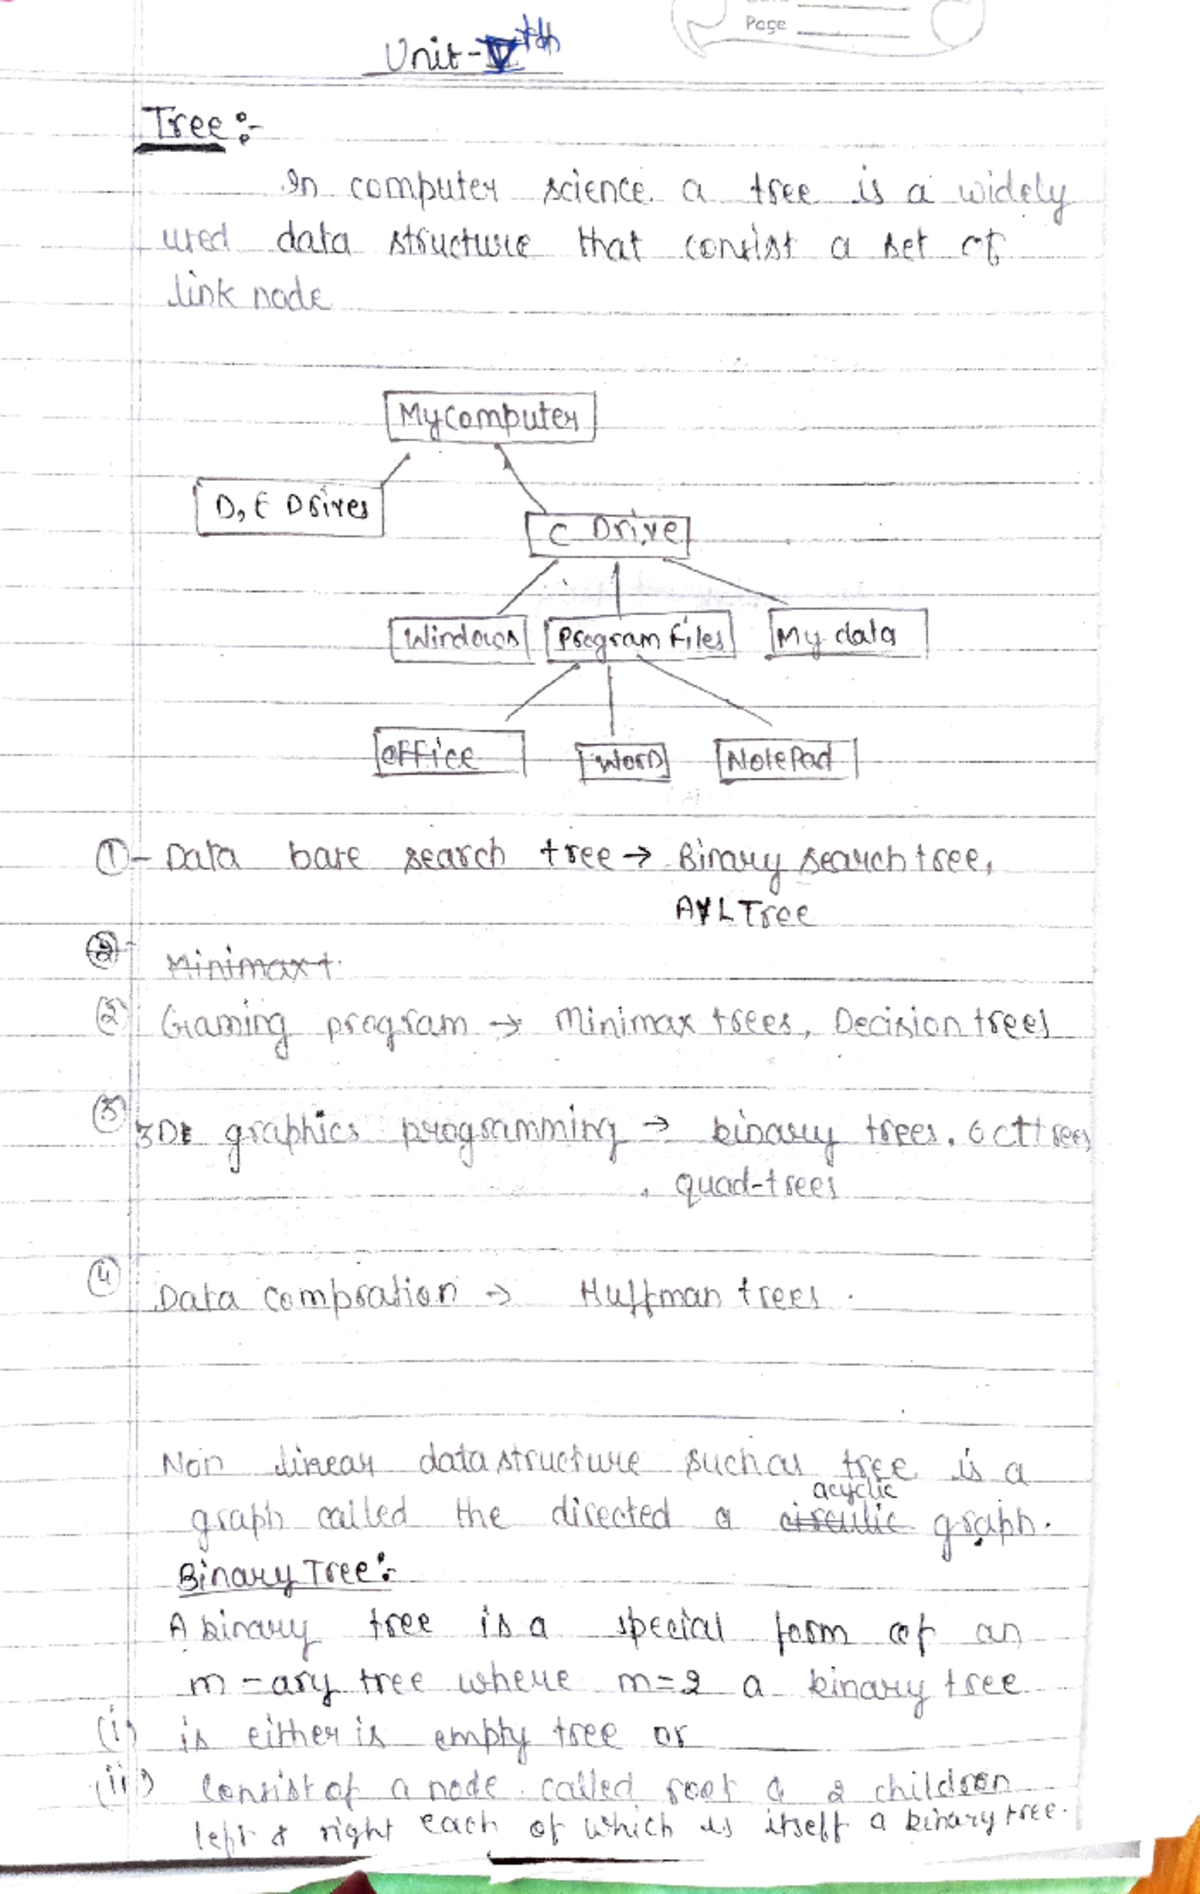 Page
Unit-Vth
Tree :-
In computer science a tree is a widely
used data structure that consist a set of
link node
Mycomputer
D, E Drives
C Drive
Windows
Program Files
My data
office
Word
NotePad
①- Data base search tree → Binary search tree,
AVL Tree
② Minimaxt.
② Gaming program → Minimax trees, Decision trees
③ 3D graphics programming → binary trees, octtrees
, quad-trees
④ Data compration → Huffman trees.
Non linear data structure such as tree is a
acyclic
graph called the directed a circulic graph.
Binary Tree :-
A binary tree is a special form of an
m-ary tree where m=2 a binary tree
(i) is either is empty tree or
(ii) Consist of a node called root & 2 children
left & right each of which is itself a binary tree.